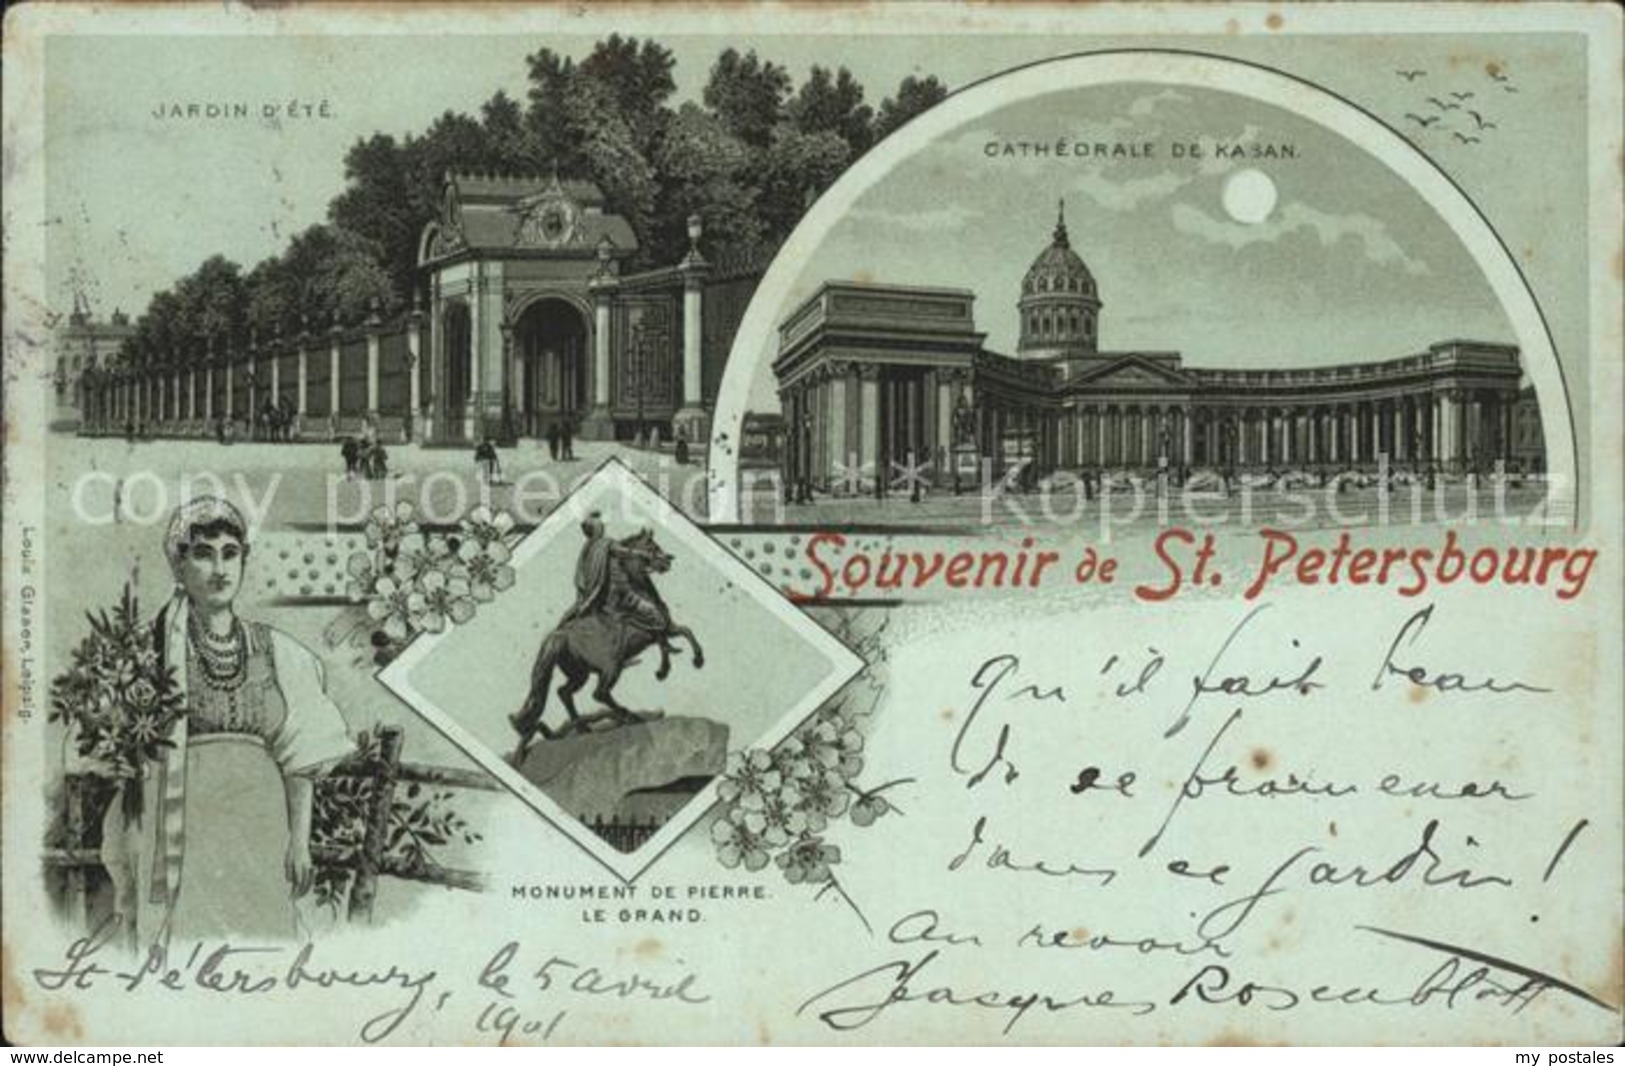 JARDIN D'ÉTÉ.
CATHÉDRALE DE KASAN.
copy protection ** Kopierschutz
Souvenir de St. Petersbourg
Louis Glaser, Leipzig.
Qu'il fait beau
de se promener
dans ce jardin!
MONUMENT DE PIERRE
LE GRAND.
Au revoir
Jacques Rosenblatt
St-Pétersbourg, le 5 avril
1901
www.delcampe.net
my postales